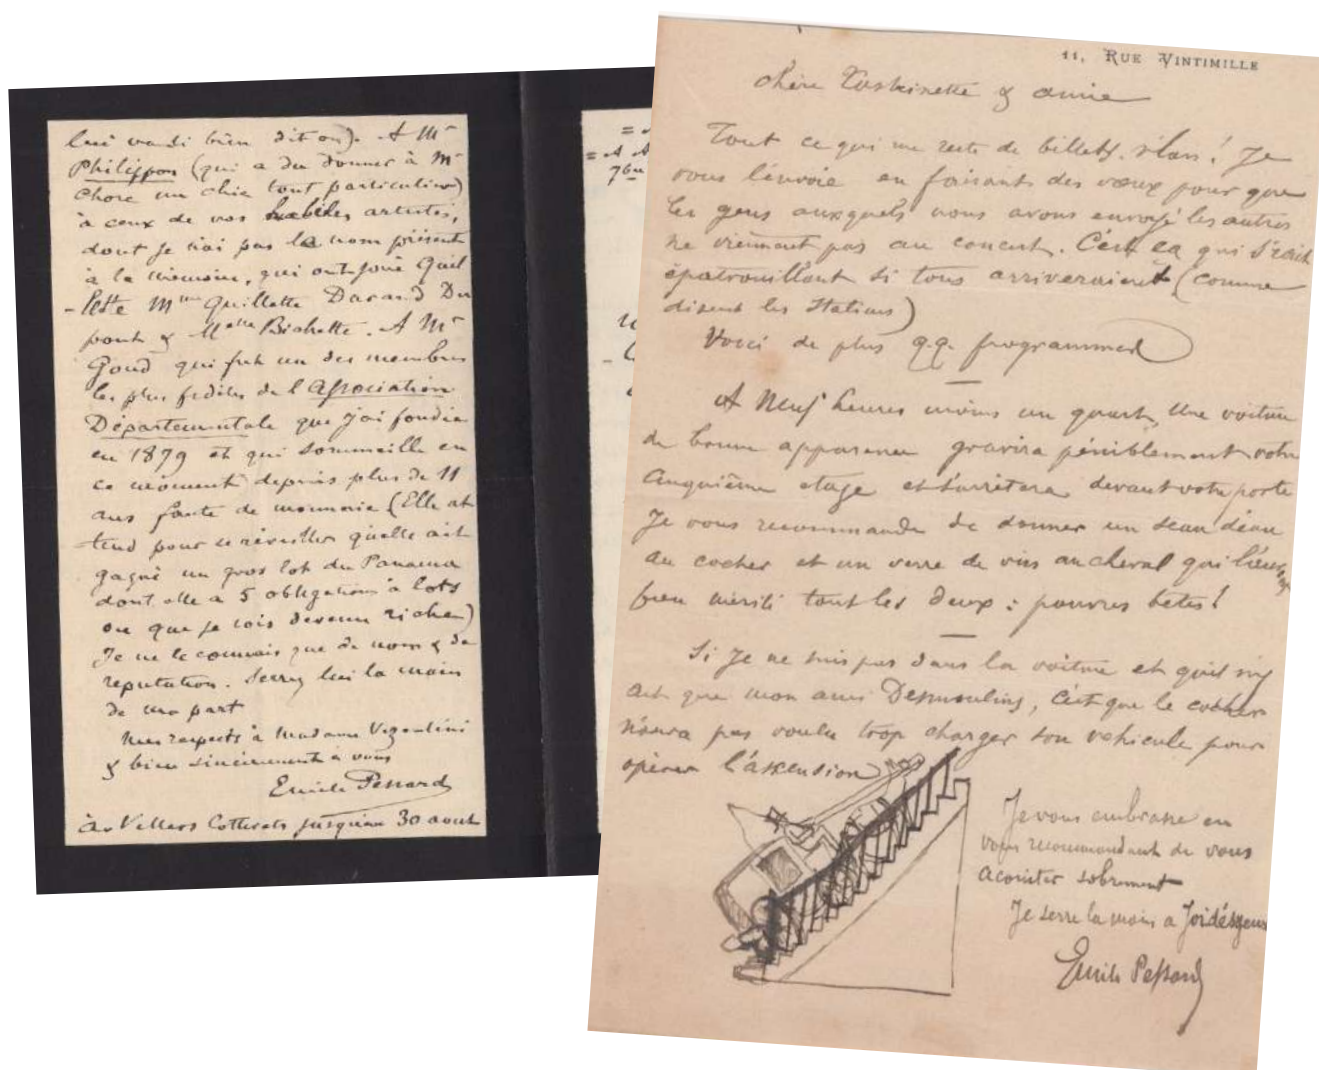 lui va-t-il bien dit on). A Mr
Philippon (qui a du donner à Mr
Chose un chic tout particulier)
à ceux de vos habiles artistes,
dont je n'ai pas le nom présent
à la mémoire, qui ont joué Guil
-lette Mme Guillette Durand Du
pont & Melle Bichette. A Mr
Goud qui fut un des membres
les plus fidèles de l'Association
Départementale que j'ai fondée
en 1879 et qui sommeille en
ce moment depuis plus de 11
ans faute de monnaie (Elle at
-tend pour se réveiller qu'elle ait
gagné un gros lot du Panama
dont elle a 5 obligations à lots
ou que je sois devenu riche)
Je ne le connais que de nom & de
réputation. Serrez lui la main
de ma part
Mes respects à Madame Vizentini
& bien sincèrement à vous
Emile Pessard
à Villers Cotterets jusqu'au 30 aout
11, RUE VINTIMILLE
chère & amie
Tout ce qui me reste de billets. vlan! Je
vous l'envoie en faisant des vœux pour que
les gens auxquels nous avons envoyé les autres
ne viennent pas au concert. C'est ça qui s'rait
épatrouillant si tous arriveraient (comme
disent les Italiens)
Voici de plus q.q. programmes
A Neuf heures moins un quart, Une voiture
de bonne apparence gravira péniblement votre
cinquième etage et s'arrêtera devant votre porte
Je vous recommande de donner un seau d'eau
au cocher et un verre de vin au cheval qui l'auront
bien mérité tout les deux : pauvres bêtes!
Si je ne suis pas dans la voiture et qu'il n'y
ait que mon ami Desmoulins, c'est que le cocher
n'aura pas voulu trop charger son véhicule pour
opérer l'ascension
Je vous embrasse en
vous recommandant de vous
acointer sobrement
Je serre la main a
Emile Pessard